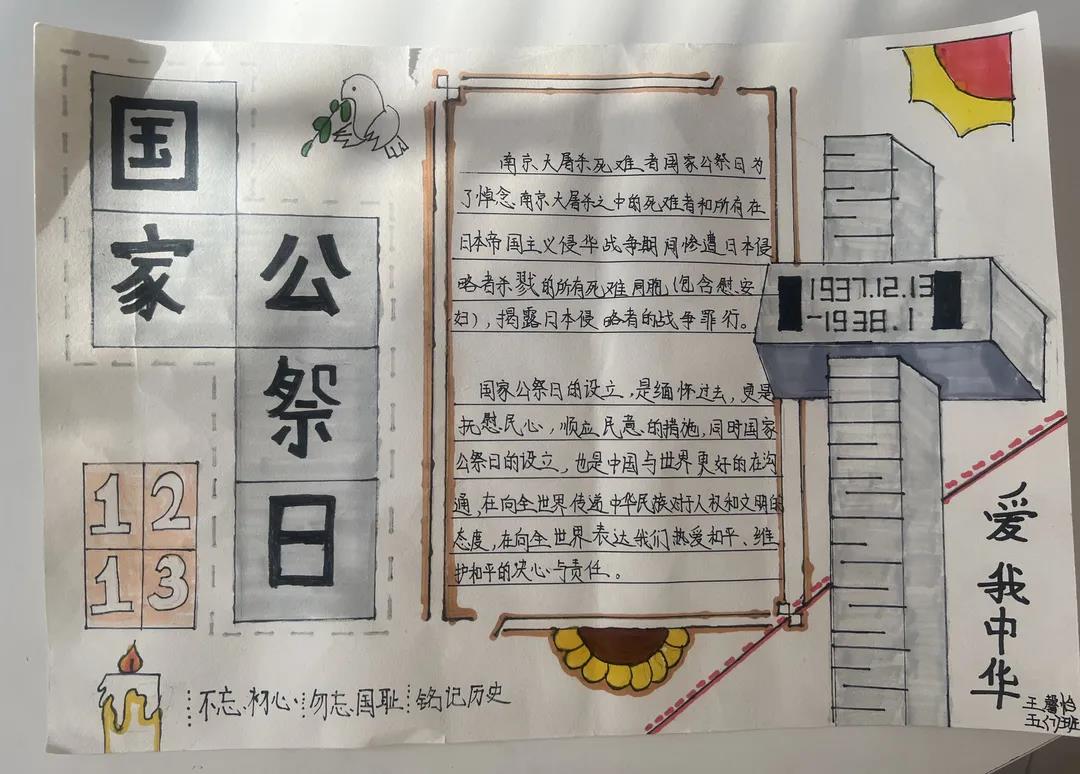 国家
公祭日
12
13
南京大屠杀死难者国家公祭日为
了悼念南京大屠杀之中的死难者和所有在
日本帝国主义侵华战争期间惨遭日本侵
略者杀戮的所有死难同胞(包含慰安
妇),揭露日本侵略者的战争罪行。
国家公祭日的设立,是缅怀过去,更是
抚慰民心,顺应民意的措施,同时国家
公祭日的设立,也是中国与世界更好的在沟
通,在向全世界传递中华民族对于人权和文明的
态度,在向全世界表达我们热爱和平、维
护和平的决心与责任。
1937.12.13
-1938.1
爱我中华
王馨怡
五(7)班
不忘初心 勿忘国耻 铭记历史